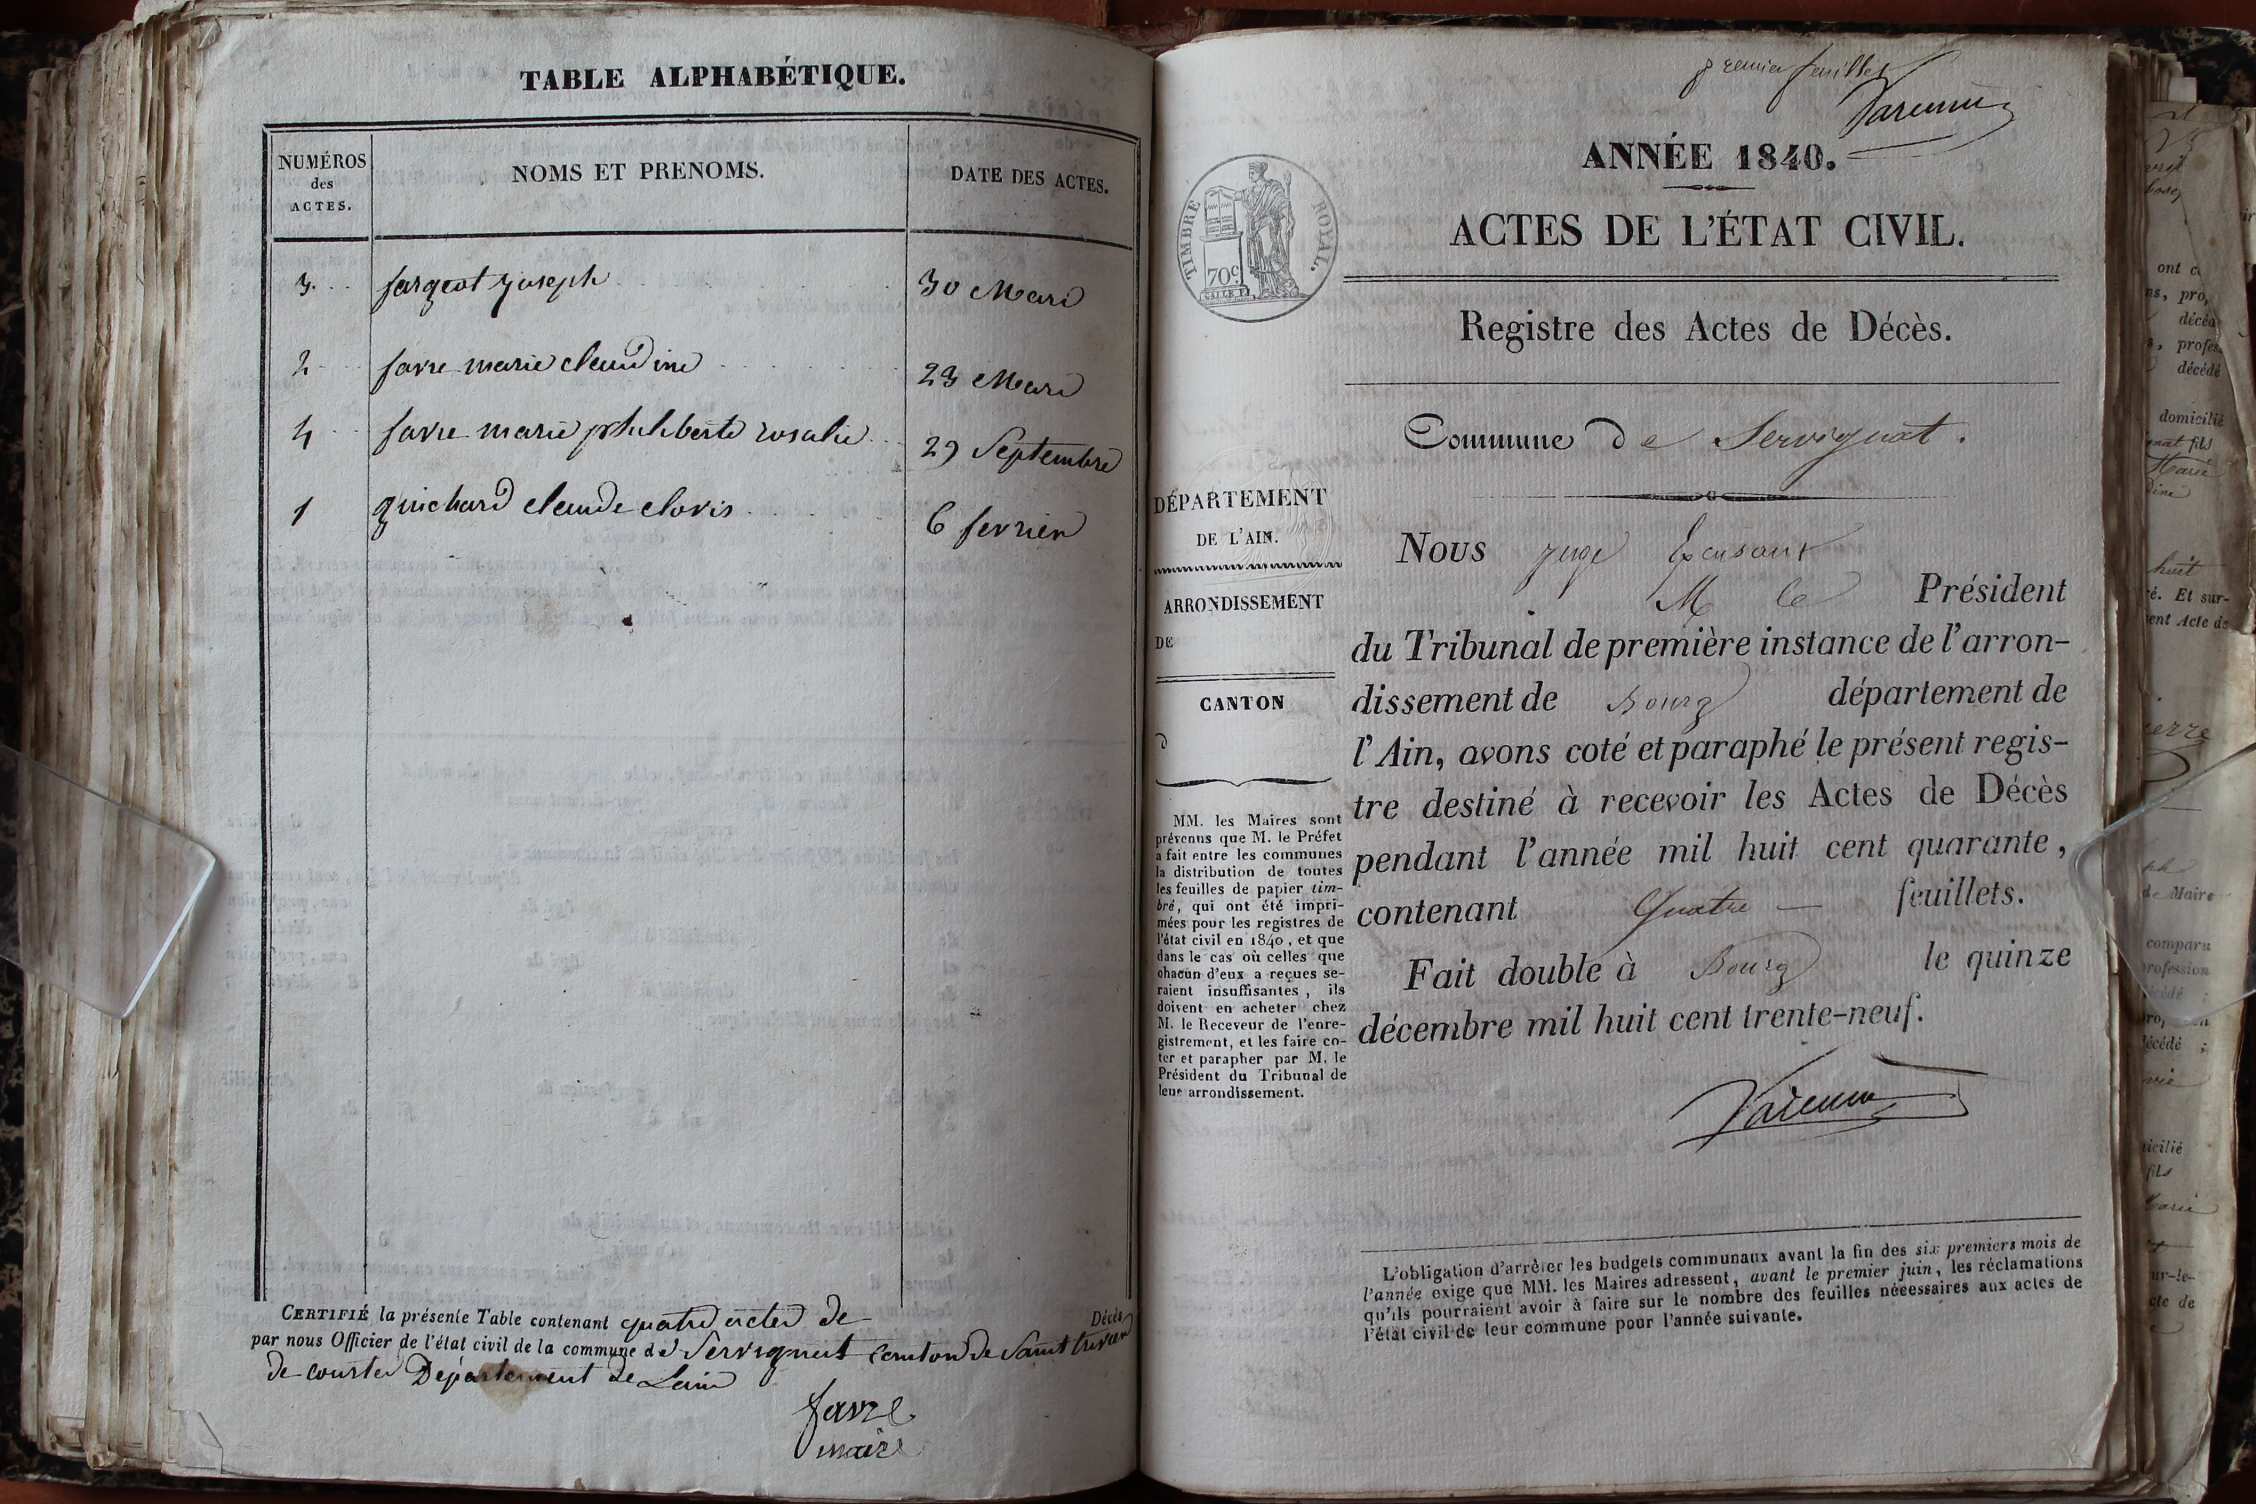 TABLE ALPHABÉTIQUE.
NUMÉROS
des
ACTES.
NOMS ET PRENOMS.
DATE DES ACTES.
3 fargeot joseph 30 Mars
2 favre marie claudine 23 Mars
4 favre marie philiberte rosalie 29 Septembre
1 guichard claude clovis 6 fevrier
CERTIFIÉ la présente Table contenant quatre actes de Décès
par nous Officier de l'état civil de la commune de Servignat canton de Saint trivier
de courtes Département de Lain
favre
maire
premier feuillet
ANNÉE 1840.
TIMBRE ROYAL.
70c
ACTES DE L'ÉTAT CIVIL.
Registre des Actes de Décès.
Commune de Servignat.
DÉPARTEMENT
DE L'AIN.
ARRONDISSEMENT
DE
CANTON
MM. les Maires sont
prévenus que M. le Préfet
a fait entre les communes
la distribution de toutes
les feuilles de papier tim-
bré, qui ont été impri-
mées pour les registres de
l'état civil en 1840, et que
dans le cas où celles que
chacun d'eux a reçues se-
raient insuffisantes, ils
doivent en acheter chez
M. le Receveur de l'enre-
gistrement, et les faire co-
ter et parapher par M. le
Président du Tribunal de
leur arrondissement.
Nous juge
M le Président
du Tribunal de première instance de l'arron-
dissement de Bourg département de
l'Ain, avons coté et paraphé le présent regis-
tre destiné à recevoir les Actes de Décès
pendant l'année mil huit cent quarante,
contenant Quatre feuillets.
Fait double à Bourg le quinze
décembre mil huit cent trente-neuf.
L'obligation d'arrêter les budgets communaux avant la fin des six premiers mois de
l'année exige que MM. les Maires adressent, avant le premier juin, les réclamations
qu'ils pourraient avoir à faire sur le nombre des feuilles nécessaires aux actes de
l'état civil de leur commune pour l'année suivante.